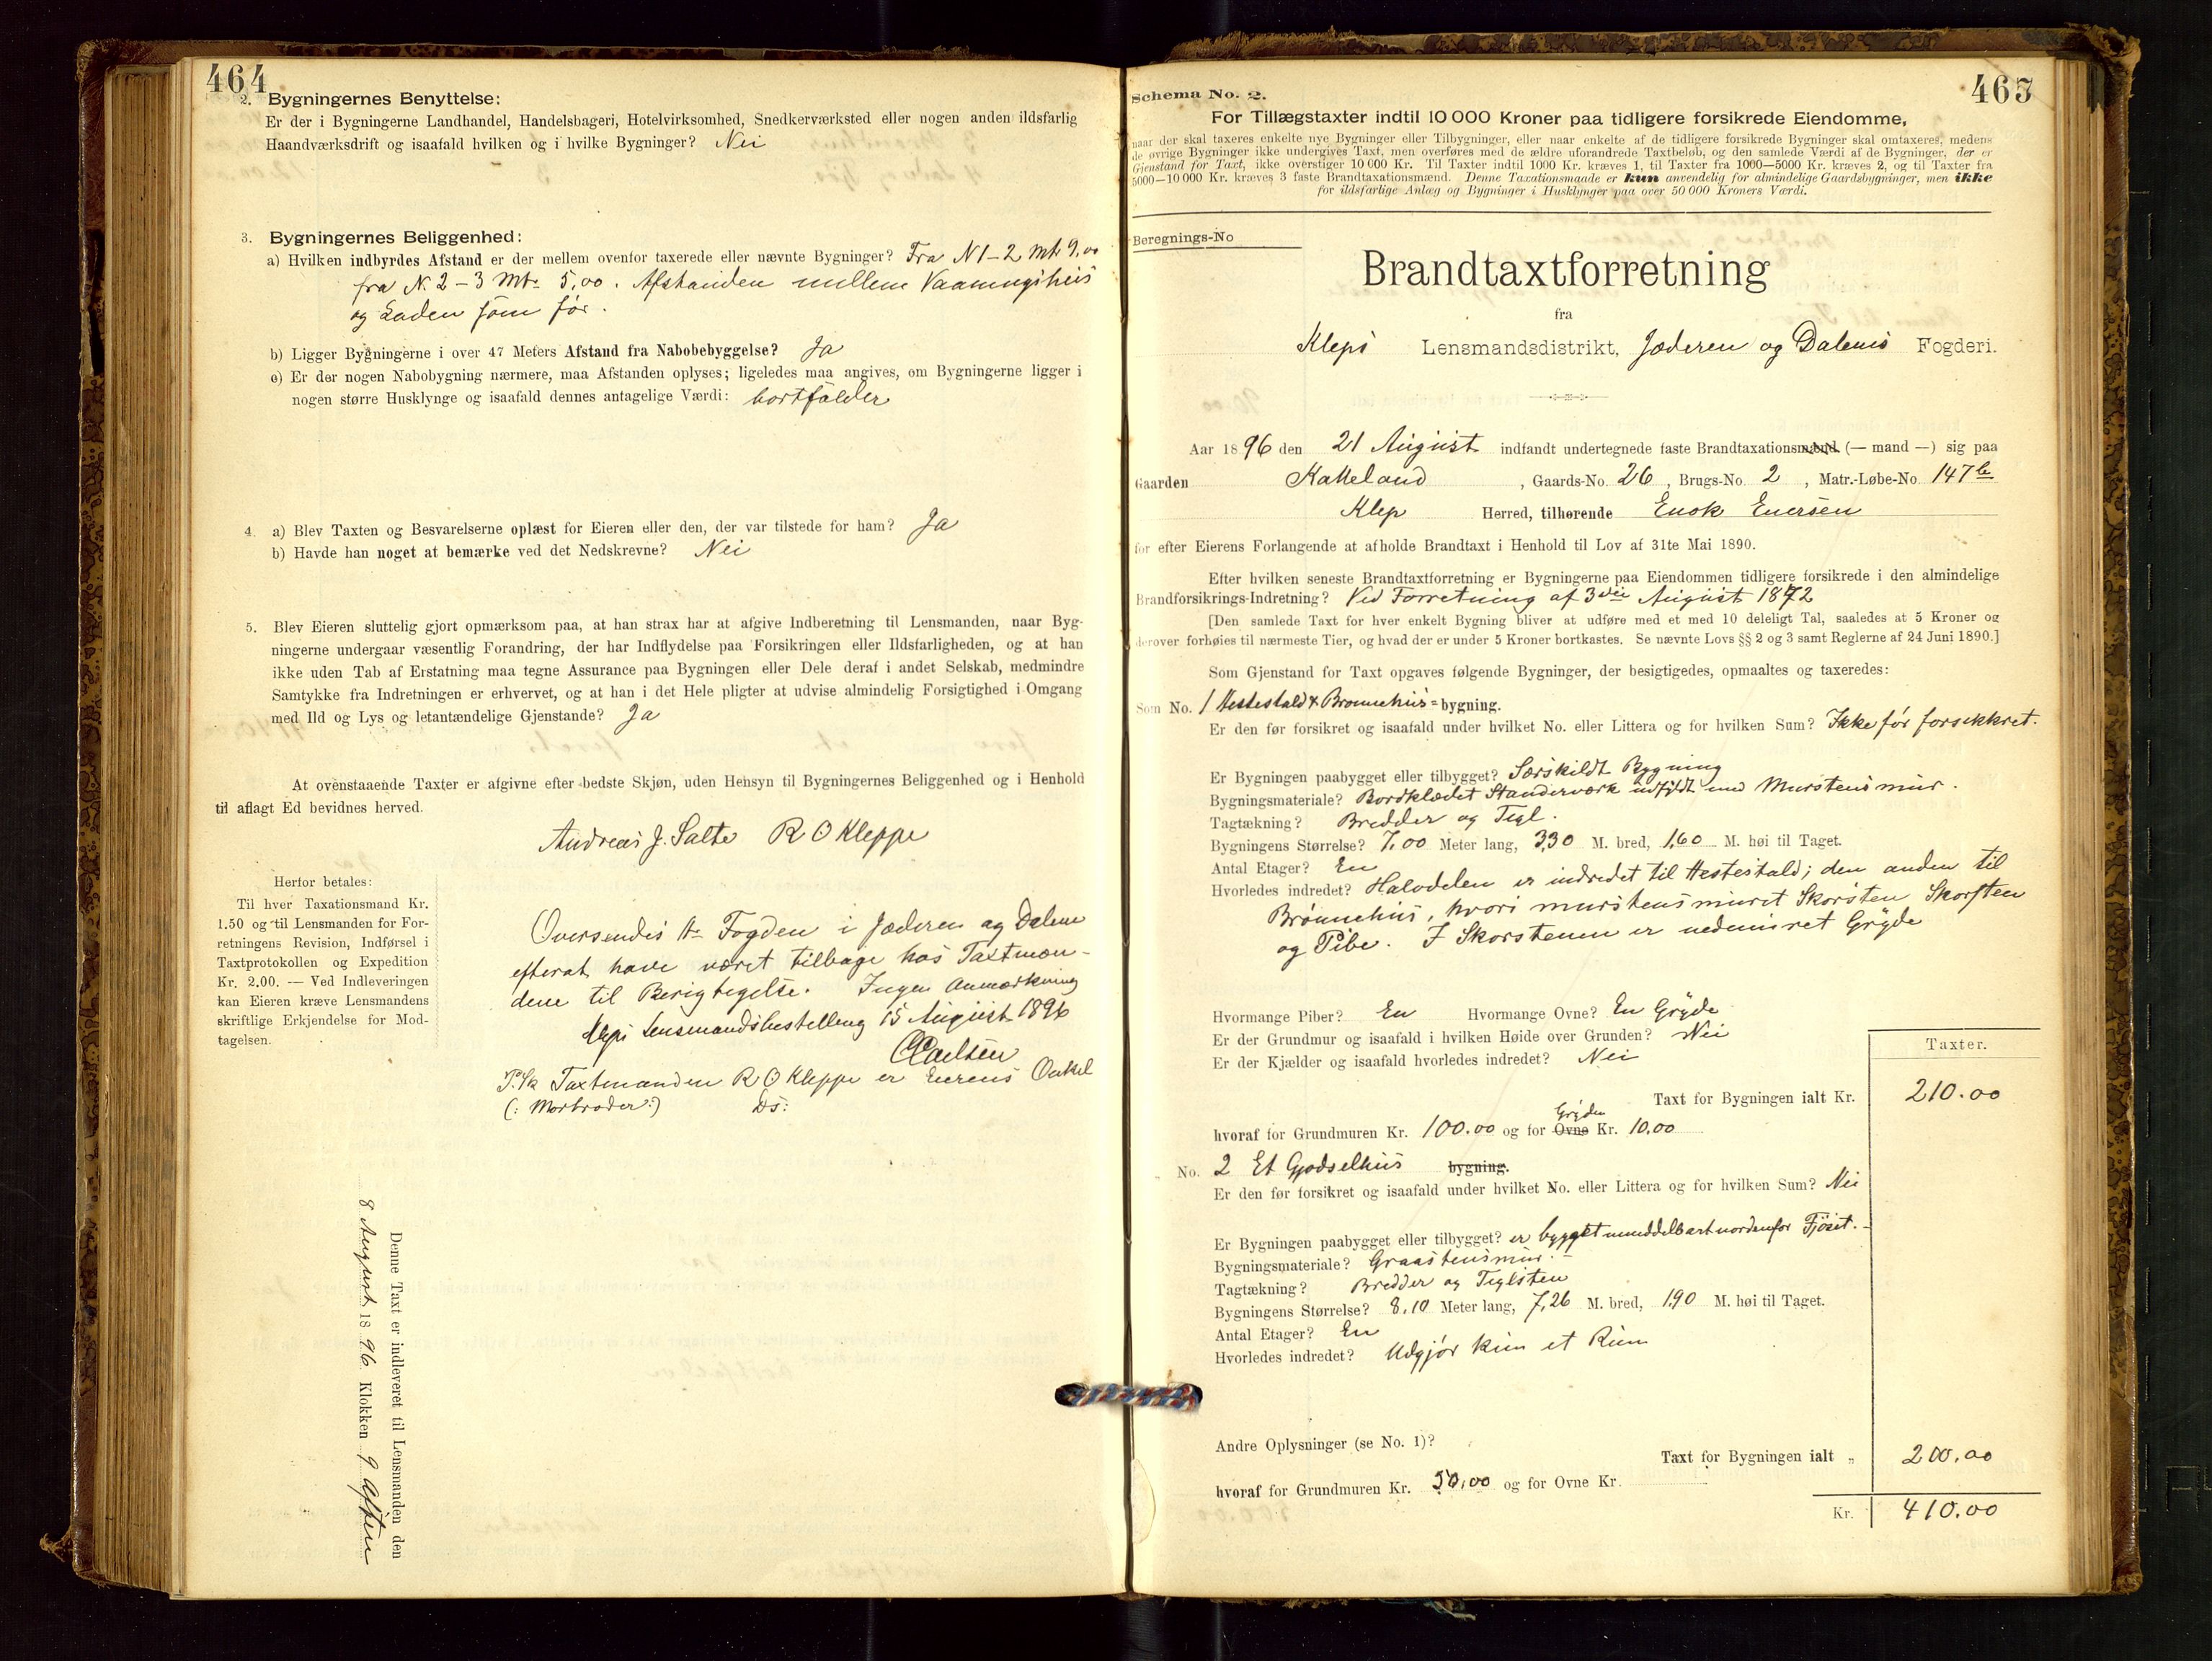 464
2. Bygningernes Benyttelse:
Er der i Bygningerne Landhandel, Handelsbageri, Hotelvirksomhed, Snedkerværksted eller nogen anden ildsfarlig
Haandværksdrift og isaafald hvilken og i hvilke Bygninger? Nei
3. Bygningernes Beliggenhed:
a) Hvilken indbyrdes Afstand er der mellem ovenfor taxerede eller nævnte Bygninger? Fra N 1 - 2 Mtr 9,00
fra N. 2 - 3 Mtr 5,00. Afstanden mellem Vaaningshus
og Laden som før.
b) Ligger Bygningerne i over 47 Meters Afstand fra Nabobebyggelse? Ja
c) Er der nogen Nabobygning nærmere, maa Afstanden oplyses; ligeledes maa angives, om Bygningerne ligger i
nogen større Husklynge og isaafald dennes antagelige Værdi: bortfalder
4. a) Blev Taxten og Besvarelserne oplæst for Eieren eller den, der var tilstede for ham? Ja
b) Havde han noget at bemærke ved det Nedskrevne? Nei
5. Blev Eieren sluttelig gjort opmærksom paa, at han strax har at afgive Indberetning til Lensmanden, naar Byg-
ningerne undergaar væsentlig Forandring, der har Indflydelse paa Forsikringen eller Ildsfarligheden, og at han
ikke uden Tab af Erstatning maa tegne Assurance paa Bygningen eller Dele deraf i andet Selskab, medmindre
Samtykke fra Indretningen er erhvervet, og at han i det Hele pligter at udvise almindelig Forsigtighed i Omgang
med Ild og Lys og letantændelige Gjenstande? Ja
At ovenstaaende Taxter er afgivne efter bedste Skjøn, uden Hensyn til Bygningernes Beliggenhed og i Henhold
til aflagt Ed bevidnes herved.
Andreas J. Salte R O Kleppe
Herfor betales:
Til hver Taxationsmand Kr.
1.50 og til Lensmanden for For-
retningens Revision, Indførsel i
Taxtprotokollen og Expedition
Kr. 2.00. — Ved Indleveringen
kan Eieren kræve Lensmandens
skriftlige Erkjendelse for Mod-
tagelsen.
Oversendes Hr Fogden i Jæderen og Dalene
efterat have været tilbage hos Taxtmæn-
dene til Berigtigelse. Ingen Anmærkning
Kleps Lensmandsbestilling 15 August 1896
P.Sk Taxtmanden R O Kleppe er Eierens Onkel
(: Morbroder:) Ds:
Denne Taxt er indleveret til Lensmanden den
8 August 1896 Klokken 9 Aften
465
Schema No. 2.
For Tillægstaxter indtil 10 000 Kroner paa tidligere forsikrede Eiendomme,
naar der skal taxeres enkelte nye Bygninger eller Tilbygninger, eller naar enkelte af de tidligere forsikrede Bygninger skal omtaxeres, medens
de øvrige Bygninger ikke undergives Taxt, men overføres med de ældre uforandrede Taxtbeløb, og den samlede Værdi af de Bygninger, der er
Gjenstand for Taxt, ikke overstiger 10 000 Kr. Til Taxter indtil 1000 Kr. kræves 1, til Taxter fra 1000—5000 Kr. kræves 2, og til Taxter fra
5000—10 000 Kr. kræves 3 faste Brandtaxationsmænd. Denne Taxationsmaade er kun anvendelig for almindelige Gaardsbygninger, men ikke
for ildsfarlige Anlæg og Bygninger i Husklynger paa over 50 000 Kroners Værdi.
Beregnings-No
Brandtaxtforretning
fra
Kleps Lensmandsdistrikt, Jæderen og Dalenes Fogderi.
Aar 1896 den 21 August indfandt undertegnede faste Brandtaxationsmænd (— mand —) sig paa
Gaarden Kalleland, Gaards-No. 26, Brugs-No. 2, Matr.-Løbe-No. 147b
Klep Herred, tilhørende Enok Enersen
for efter Eierens Forlangende at afholde Brandtaxt i Henhold til Lov af 31te Mai 1890.
Efter hvilken seneste Brandtaxtforretning er Bygningerne paa Eiendommen tidligere forsikrede i den almindelige
Brandforsikrings-Indretning? Ved Forretning af 3die August 1872
[Den samlede Taxt for hver enkelt Bygning bliver at udføre med et med 10 deleligt Tal, saaledes at 5 Kroner og
derover forhøies til nærmeste Tier, og hvad der er under 5 Kroner bortkastes. Se nævnte Lovs §§ 2 og 3 samt Reglerne af 24 Juni 1890.]
Som Gjenstand for Taxt opgaves følgende Bygninger, der besigtigedes, opmaaltes og taxeredes:
Som No. 1 Hestestald & Brønnehus-bygning.
Er den før forsikret og isaafald under hvilket No. eller Littera og for hvilken Sum? Ikke før forsikkret.
Er Bygningen paabygget eller tilbygget? Særskildt Bygning
Bygningsmateriale? Bordklædet Standerværk udfyldt med Murstensmur.
Tagtækning? Bredder og Tegl.
Bygningens Størrelse? 7,00 Meter lang, 3,30 M. bred, 1,60 M. høi til Taget.
Antal Etager? En
Hvorledes indredet? Halvdelen er indredet til Hestestald; den anden til
Brønnehus, hvori murstensmuret Skorsten Skorsten
og Pibe. I Skorstenen er nedmuret Gryde
Hvormange Piber? En Hvormange Ovne? En Gryde
Er der Grundmur og isaafald i hvilken Høide over Grunden? Nei
Er der Kjælder og isaafald hvorledes indredet? Nei
Taxter.
Taxt for Bygningen ialt Kr. 210.00
Gryden
hvoraf for Grundmuren Kr. 100.00 og for Ovne Kr. 10.00
No. 2 Et Gjødselhus bygning.
Er den før forsikret og isaafald under hvilket No. eller Littera og for hvilken Sum? Nei
Er Bygningen paabygget eller tilbygget? er bygget umiddelbart nordenfor Fjøset.
Bygningsmateriale? Graastensmur.
Tagtækning? Bredder og Teglsten
Bygningens Størrelse? 8,10 Meter lang, 7,26 M. bred, 1,90 M. høi til Taget.
Antal Etager? En
Hvorledes indredet? Udgjør kun et Rum
Andre Oplysninger (se No. 1)?
Taxt for Bygningen ialt „ 200.00
hvoraf for Grundmuren Kr. 50,00 og for Ovne Kr.
Kr. 410.00